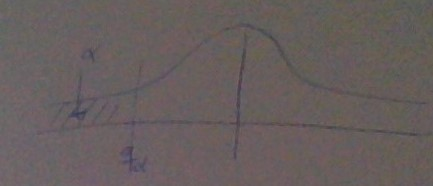 α
qα